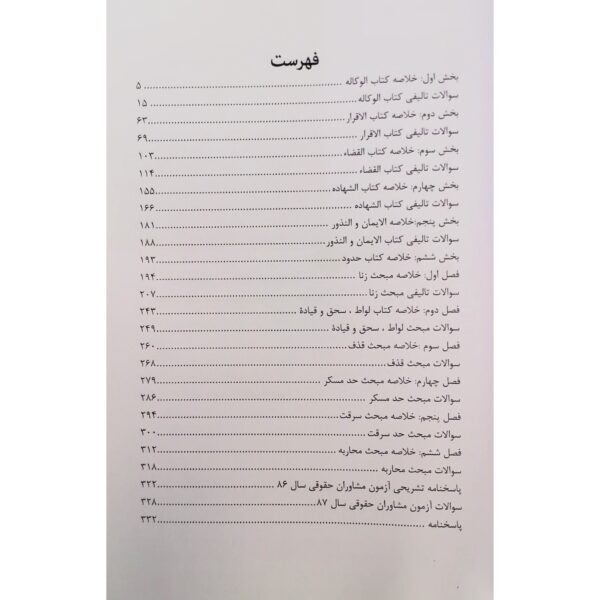 فهرست
بخش اول: خلاصه کتاب الوکاله ........ ۵
سوالات تالیفی کتاب الوکاله ........ ۱۵
بخش دوم: خلاصه کتاب الاقرار ........ ۶۳
سوالات تالیفی کتاب الاقرار ........ ۶۹
بخش سوم: خلاصه کتاب القضاء ........ ۱۰۳
سوالات تالیفی کتاب القضاء ........ ۱۱۴
بخش چهارم: خلاصه کتاب الشهاده ........ ۱۵۵
سوالات تالیفی کتاب الشهاده ........ ۱۶۶
بخش پنجم:خلاصه الایمان و النذور ........ ۱۸۱
سوالات تالیفی کتاب الایمان و النذور ........ ۱۸۸
بخش ششم: خلاصه کتاب حدود ........ ۱۹۳
فصل اول: خلاصه مبحث زنا ........ ۱۹۴
سوالات تالیفی مبحث زنا ........ ۲۰۷
فصل دوم: خلاصه کتاب لواط ، سحق و قیادة ........ ۲۴۳
سوالات مبحث لواط ، سحق و قیادة ........ ۲۴۹
فصل سوم :خلاصه مبحث قذف ........ ۲۶۰
سوالات مبحث قذف ........ ۲۶۸
فصل چهارم: خلاصه مبحث حد مسکر ........ ۲۷۹
سوالات مبحث حد مسکر ........ ۲۸۶
فصل پنجم: خلاصه مبحث سرقت ........ ۲۹۴
سوالات مبحث حد سرقت ........ ۳۰۰
فصل ششم: خلاصه مبحث محاربه ........ ۳۱۲
سوالات مبحث محاربه ........ ۳۱۸
پاسخنامه تشریحی آزمون مشاوران حقوقی سال ۸۶ ........ ۳۲۲
سوالات آزمون مشاوران حقوقی سال ۸۷ ........ ۳۲۸
پاسخنامه ........ ۳۳۲